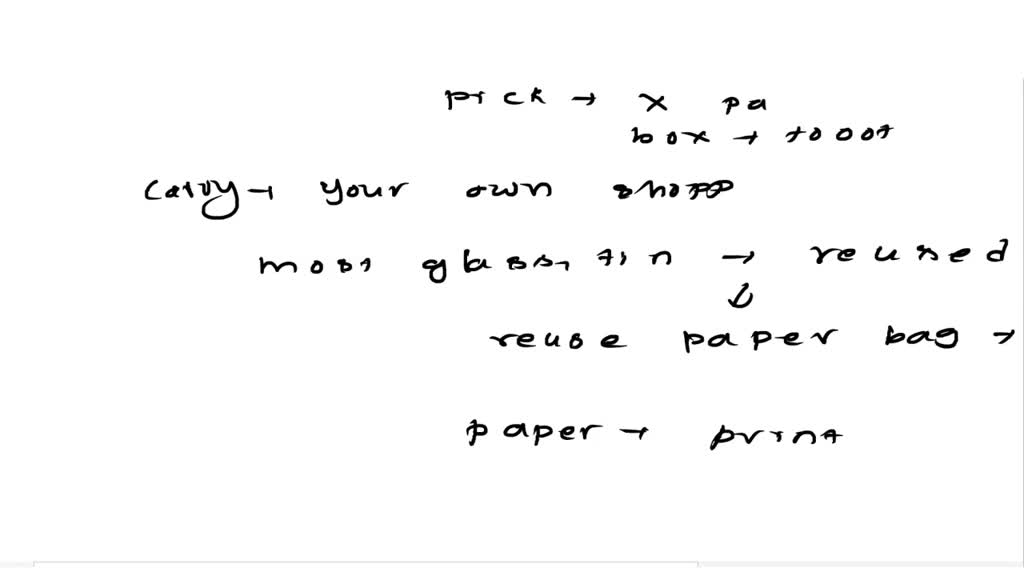 pick → x pa
box → 
Carry → your own shopp
most glass, tin → reused
↓
reuse paper bag →
paper → print